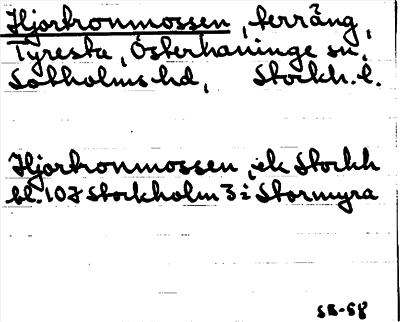 Hjortronmossen, terräng,
Tyresta, Österhaninge sn,
Sotholms hd, Stockh. l.
Hjortronmossen, ek Stockh
bl. 107 Stockholm 3 i Stormyra
SB-58